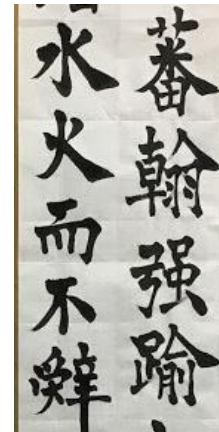 蕃翰强踰
水火而不辭